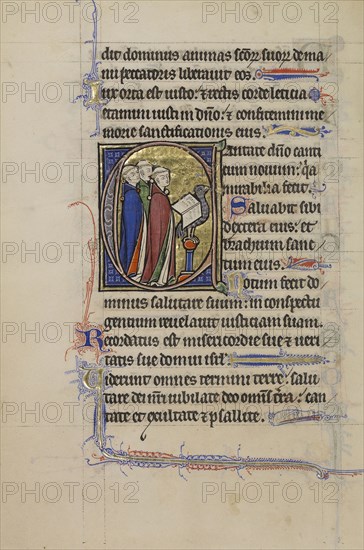 dit dominus animas scōr suor de ma
nu peccatoris liberavit eos.
Lux orta est iusto: et rectis corde leticia
Letamini iusti in dño: et confitemini me
morie sanctificationis eius.
Cantate dño canti
cum novum: qa
mirabilia fecit.
Salvabit sibi
dextera eius: et
brachium sanc
tum eius.
Notum fecit do
minus salutare suum: in conspectu
gentium revelavit iusticiam suam.
Recordatus est misericordie sue et veri
tatis sue domui isrl.
Viderunt omnes termini terre: salu
tare dei nri
iubilate deo omīs terra: can
tate et exultate et psallite.